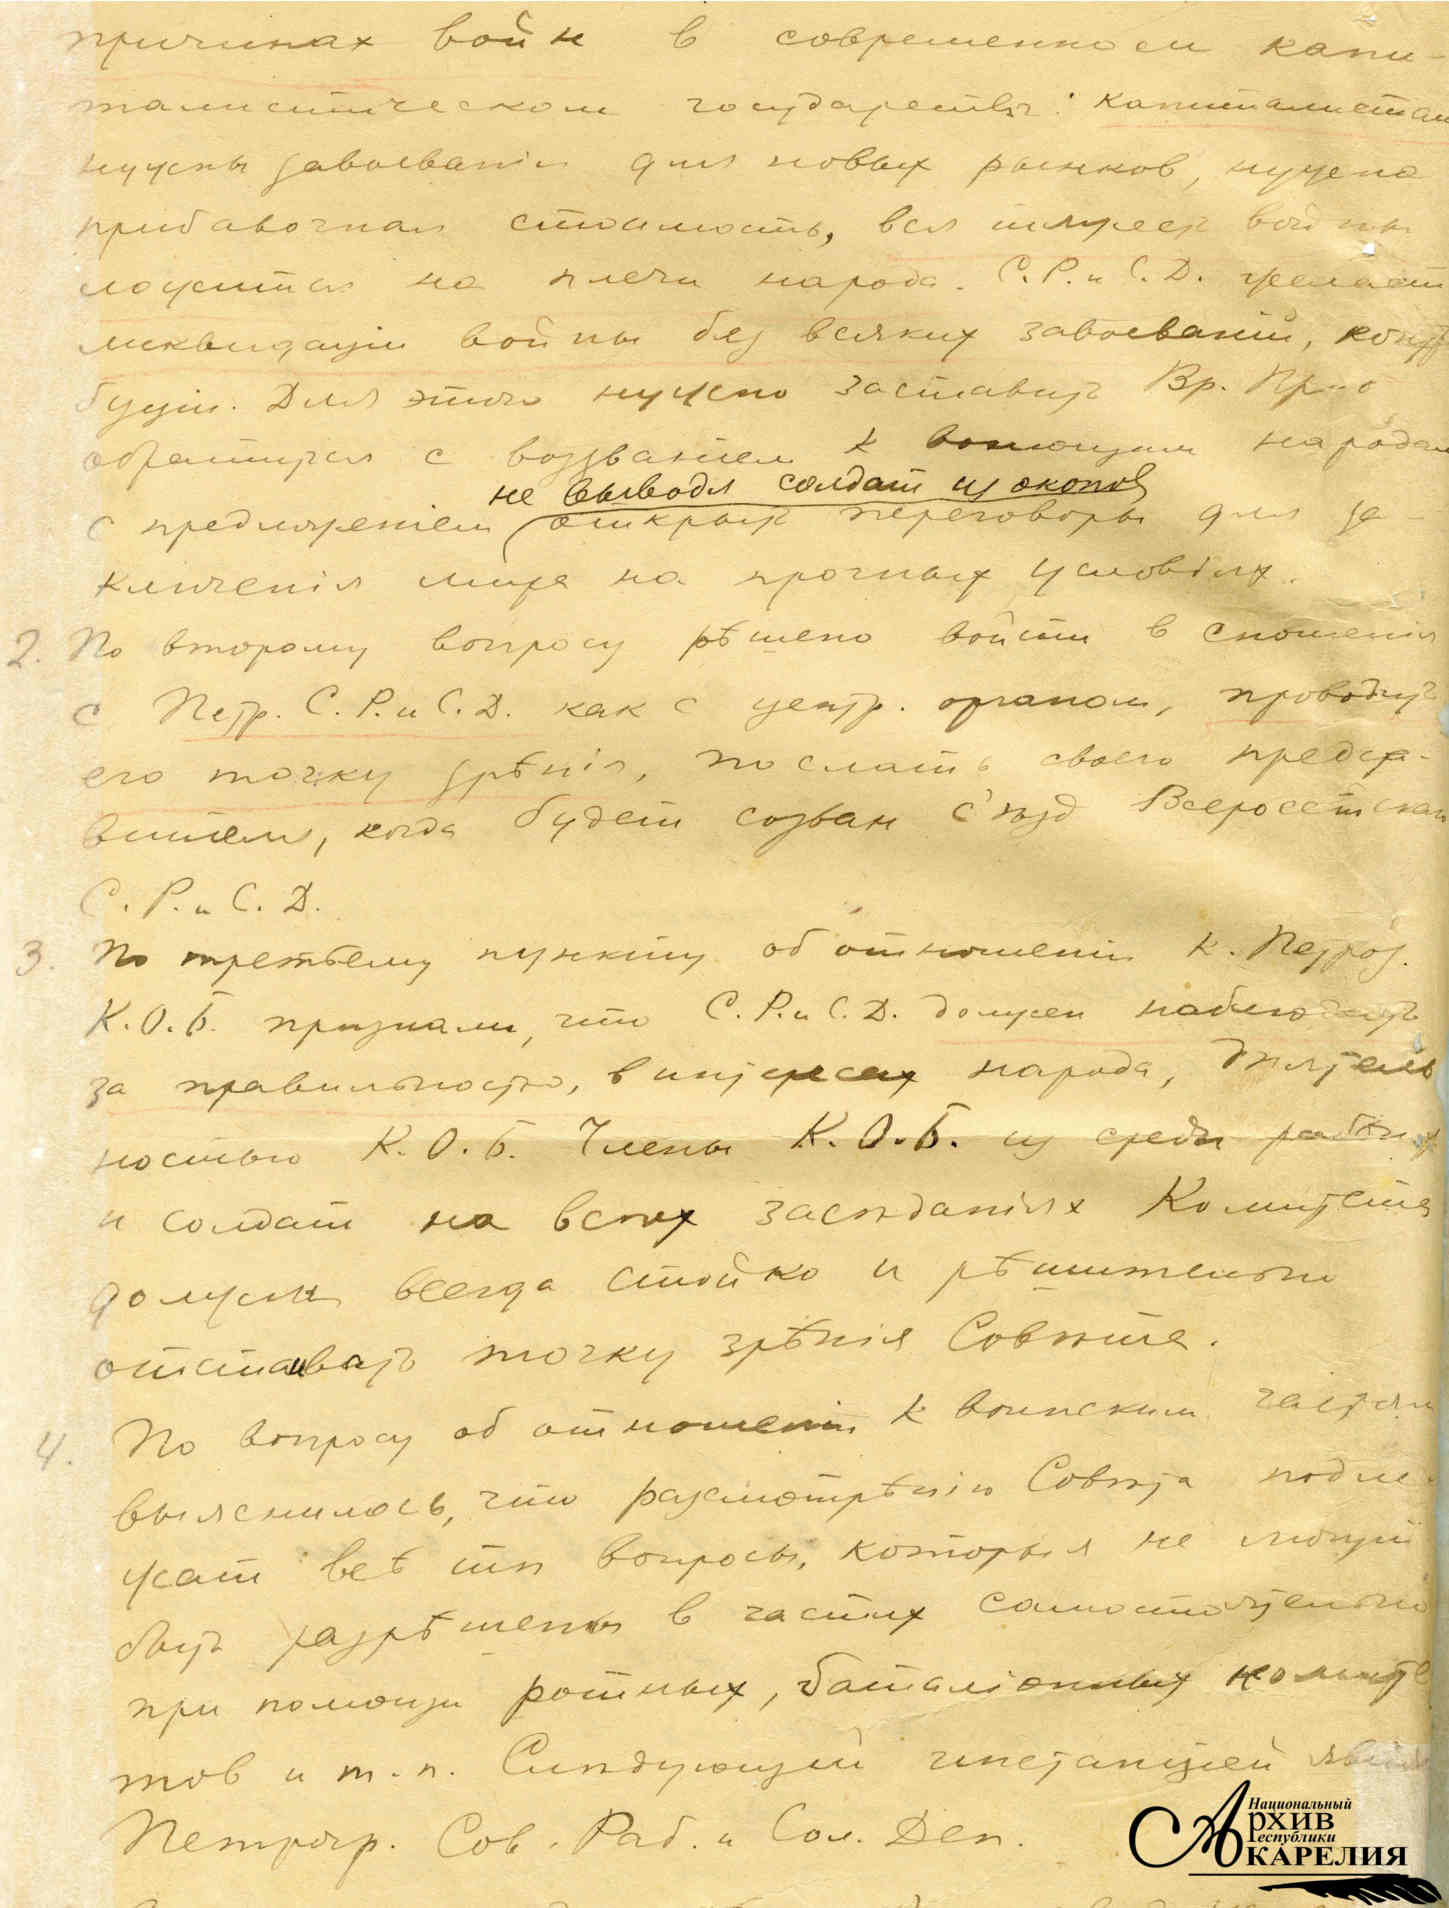 причинах войн в современном капи-
талистическом государствѣ: капиталистам
нужны завоеванія для новых рынков, нужна
прибавочная стоимость, вся тяжесть войны
ложится на плечи народа. С.Р. и С.Д. желает
ликвидаціи войны без всяких завоеваній, контр
буціи. Для этого нужно заставить Вр. Пр-во
обратиться с воззваніем к воюющим народам
не выводя солдат из окопов
с предложеніем открыть переговоры для за-
ключенія мира на прочных условіях.
2. По второму вопросу рѣшено войти в сношенія
с Петр. С.Р. и С.Д. как с центр. органом, проводить
его точку зрѣнія, послать своего предста-
вителя, когда будет созван съѣзд Всеросейскаго
С.Р. и С.Д.
3. По третьему пункту об отношеніи к Петроз.
К.О.Б. признали, что С.Р. и С.Д. должен наблюдать
за правильностью, в интересах народа, дѣятель
ностью К.О.Б. Члены К.О.Б. из среды рабочих
и солдат на всѣх засѣданіях Комитета
должны всегда стойко и рѣшительно
отстаивать точку зрѣнія Совѣта.
4. По вопросу об отношеніи к воинским частям
выяснилось, что разсмотрѣнію Совѣта подле-
жат всѣ тѣ вопросы, которыя не могут
быть разрѣшены в частях самостоятельно
при помощи ротных, баталіонных комите
тов и т.п. Слѣдующей инстанціей явл
Петрогр. Сов. Раб. и Сол. Деп.
Национальный
Архив
Республики
Карелия